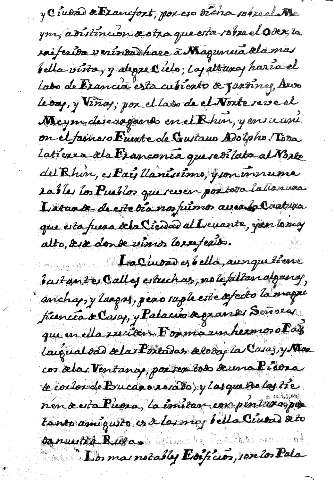 y Ciudad de Francfort, por eso dicha sobre el Me
yn, a distincion de otra que esta sobre el Oder, la
referida vecindad hace à Maguncia de la mas
bella vista, y alegre Cielo; las alturas hacia el
lado de Francia esta cubierto de Jardines, Arvo
ledas, y Viñas; por el lado de el Norte se ve el
Meyn desaguando en el Rhin, y en su uni
on el famoso Fuerte de Gustavo Adolpho. Toda
la tierra de la Franconia que se dilata al Norte
del Rhin, es Pais llanissimo, y son innume
rables los Pueblos que se ven por toda la llanura
La tarde de este dia nos fuimos a ver la Cartuxa
que esta fuera de la Ciudad al Levante, y en lo mas
alto, desde donde vimos lo referido.
La Ciudad es bella, aunque tiene
bastantes Calles estrechas, no le faltan algunas
anchas, y largas, pero suple este defecto la magni
ficencia de Casas, y Palacios de grandes Señores
que en ella residen. Forma un hermoso
la igualdad de las Portadas de todas las Casas, y Mar
cos de las Ventanas, por ser todo de una Piedra
de color de Bucaro rosado; y las que no las tie
nen de esta Piedra, la imitan con pinturas, por
tanto a mi gusto es de las mas bella Ciudad de to
da nuestra Ruta.
Los mas notables Edificios, son los Pala